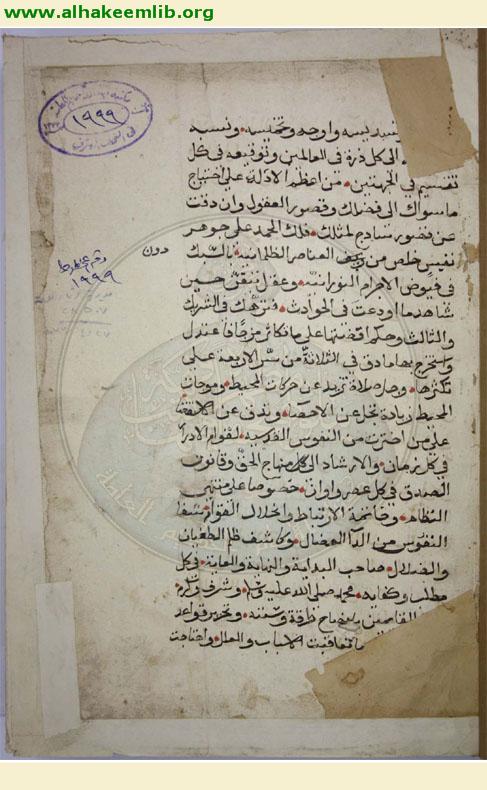 www.alhakeemlib.org
١٩٩٩
دون
١٩٩٩
وتسديسه واوجه وتخميسه ونسبه
الى كل ذرة في العالمين وتوقيعه في كل
تقسيم في الجهتين من اعظم الادلة على احتياج
ماسواك الى فضلك وقصور العقول وان دقت
عن تصور نماذج لمثالك فلك الحمد على جوهر
نفيس خلص من العناصر الظلمانية
في فيوض الاجرام النورانية وعقل تيقن حين
شاهد ما اودعت في الحوادث فنزهك عن الشريك
والثالث وحكم اقضتها على ما تكاثر
واستخرج بها ما دق في الثلاثة من سر الاربعة على
تكثرها وصل صلاة تزيد عن حركات المحيط وموجات
المحيط زيادة تجل عن الاحصاء وتدق عن الاستقصا
على من اخترت من النفوس القدسية لقوام الادوار
في كل زمان والارشاد الى كل منهاج الحق وقانون
الصدق في كل عصر واوان خصوصا على منتهى
النظام وخاتمة الارتباط وانحلال القوام شفا
النفوس من الداء العضال وكاشف ظلم الطغيان
والضلال صاحب البداية والنهاية والغاية في كل
مطلب وكفاية محمد صلى الله عليه وسلم وشرف وكرم
القائمين بايضاح طرقه وسننه وتحرير قواعد
ما تعاقبت الاسباب والعلل واحتاجت